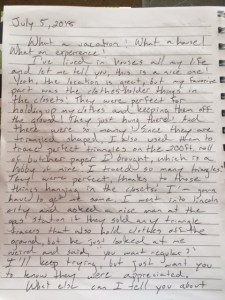 July 5, 2018
What a vacation! What a home!
What an experience!
I've lived in houses all my life
and let me tell you, this is a nice one!
Yeah, the location is great, but my favorite
part was the clothes-holder things in
the closets! They were perfect for
holding up my clothes and keeping them off
the ground! They just hung there! And
there were so many! Since they are
triangle shaped, I also used them to
trace perfect triangles on the 200ft roll
of butcher paper I brought, which is a
hobby of mine. I traced so many triangles!
They were perfect, thanks to those
things hanging in the closets! I'm gonna
have to get me some. I went into Lincoln
City and asked a nice man at the
gas station if they sold any triangle
tracers that also hold clothes off the
ground, but he just looked at me
weird and said, "you mean hangers?"
I'll keep trying, but just want you
to know they were appreciated.
What else can I tell you about